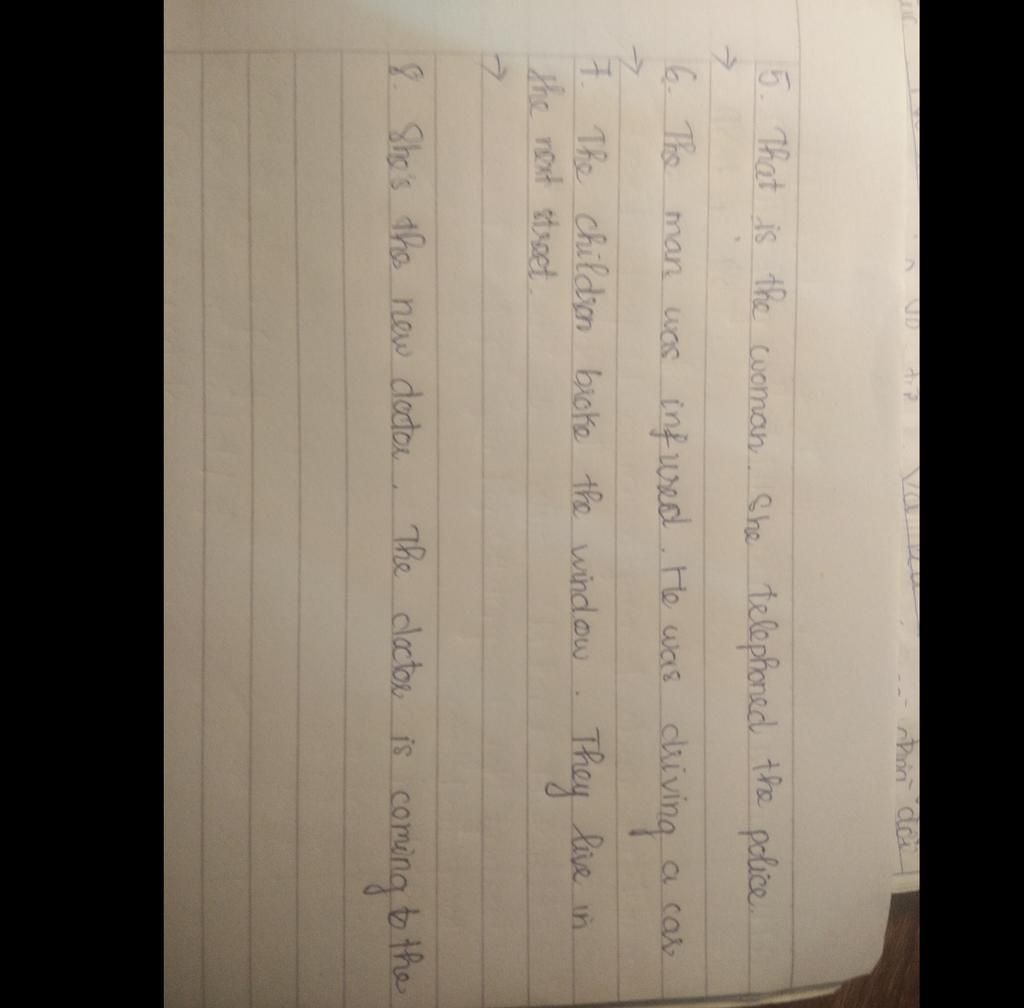 5. That is the woman. She telephoned the police.
→
6. The man was infured. He was driving a car
→
7. The children broke the window. They live in
the next street.
→
8. She's the new doctor. The doctor is coming to the